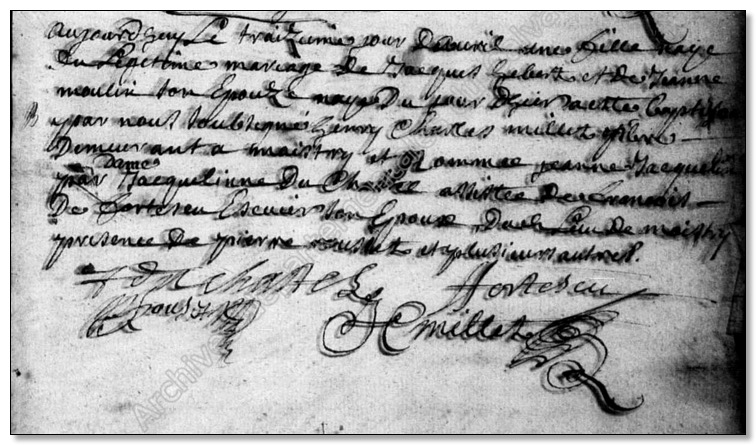 aujourdhuy le traiziyme jour davril une fille naye
du legitime mariage de Jacques hebert et de Jeanne
moulin son Epouze naye du jour dhier a este baptisee
par nous soubsigné henry Charles millet pbre
demeurant a maistry et nommee jeanne Jacqueline
par dame Jacquelinne Du Chastel assistee de francois
De fortescu Escuier son Epoux dud lieu de maistry
presence de pierre roussel et plusieurs autres.
J du chastel fortescu
P roussel HC millet
Archives